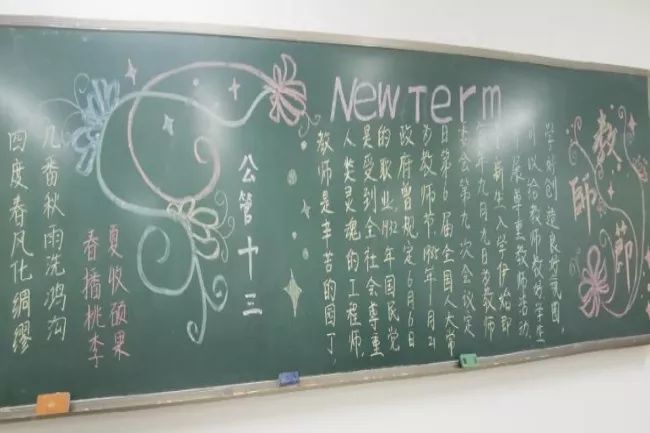 四度春风化绸缪
几番秋雨洗鸿沟
春播桃李
夏收硕果
公管十三
New Term
教师是辛苦的园丁,
人类灵魂的工程师,
是受到全社会尊重
的职业.1932年国民党
政府曾规定6月6日
为教师节.1985年1月21
日第6届全国人大常
委会第九次会议定
年九月九日为教师
新生入学伊始即
开展尊重教师活动,
可以给教师教好学生
学好创造良好氛围。
教師節